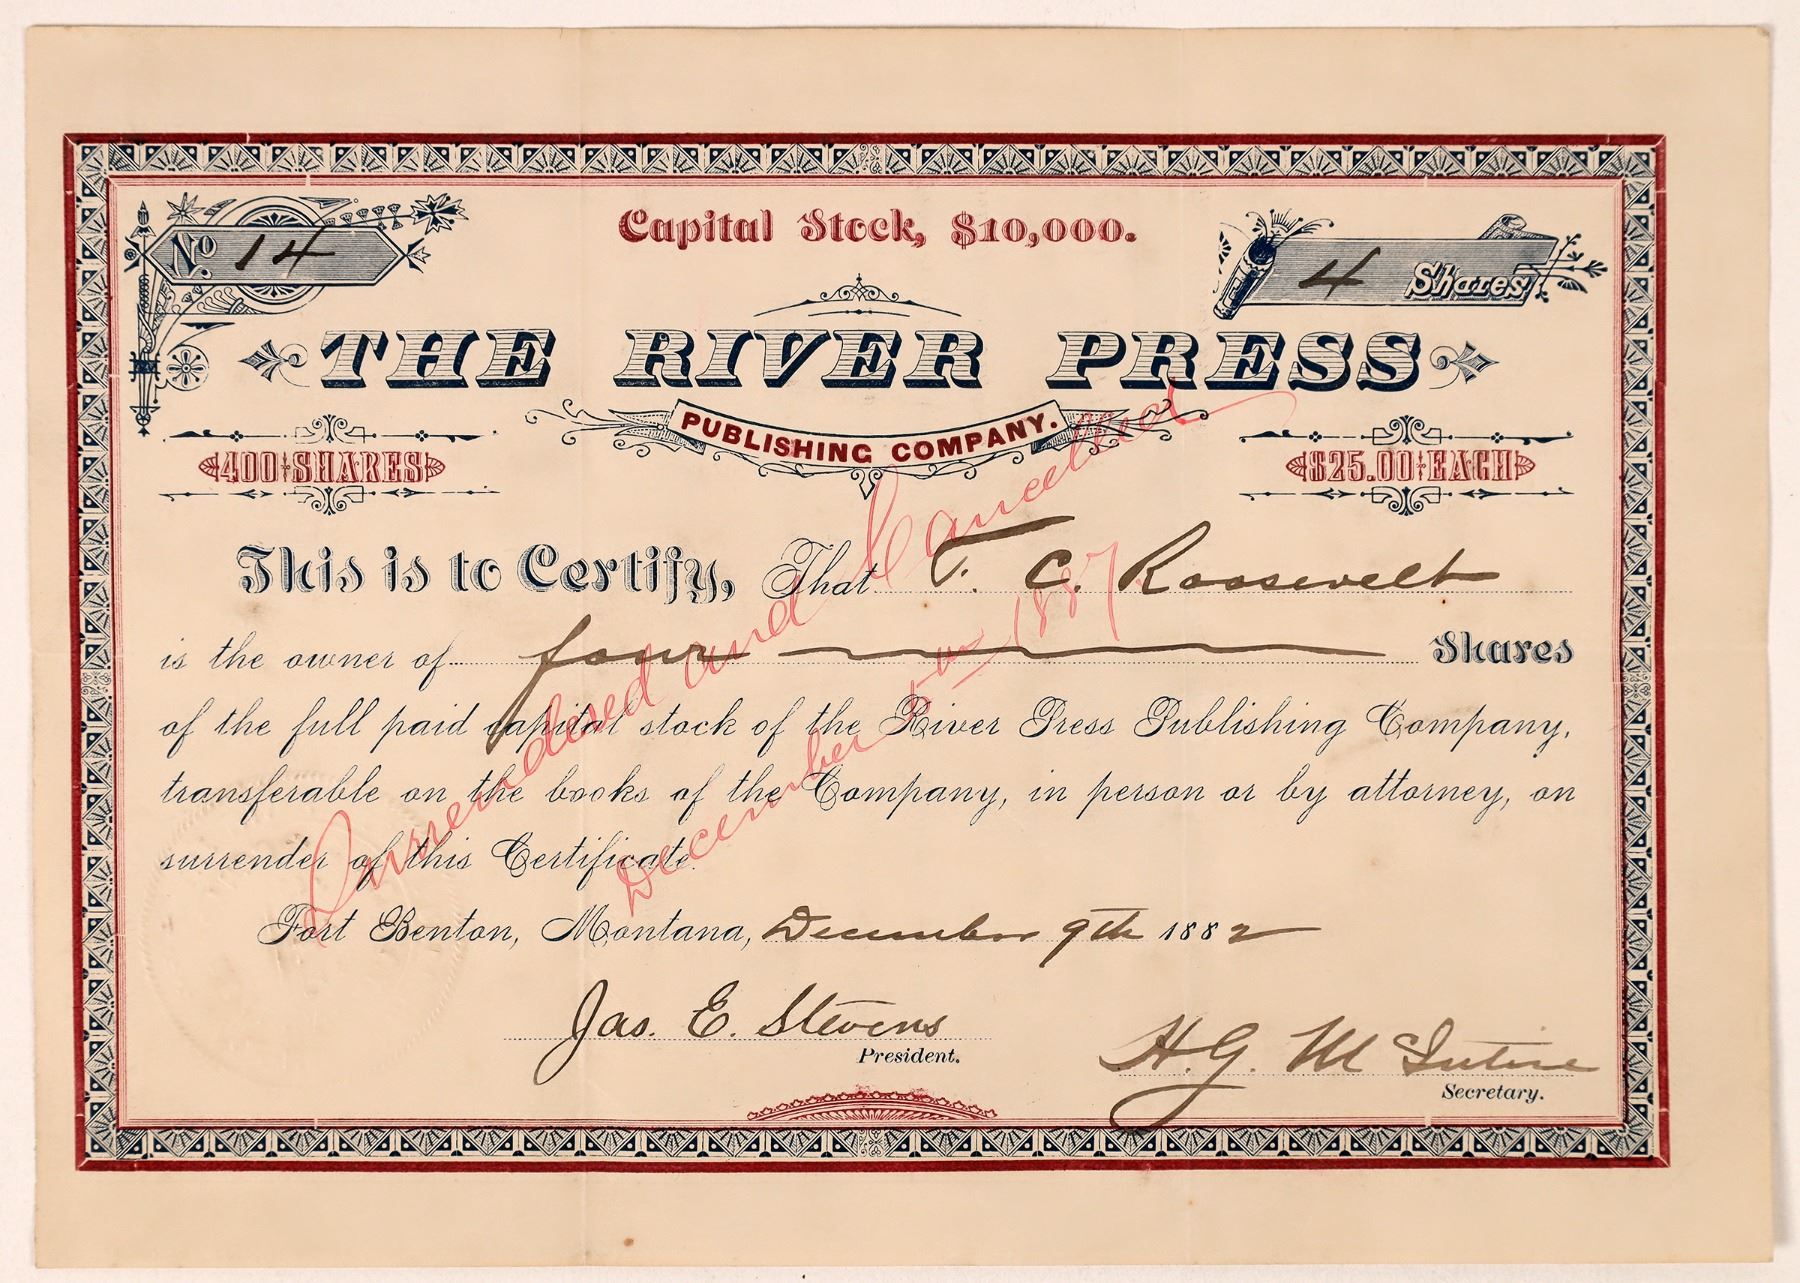 Capital Stock, $10,000.
No 14
4 Shares
THE RIVER PRESS
PUBLISHING COMPANY.
400 SHARES
$25.00 EACH
This is to Certify, That T. C. Roosevelt
is the owner of four Shares
of the full paid capital stock of the River Press Publishing Company,
transferable on the books of the Company, in person or by attorney, on
surrender of this Certificate.
Fort Benton, Montana, December 9th 1882
Jas. E. Stevens
President.
H. G. McIntire
Secretary.
Surrendered and Cancelled
December 5th 1887.